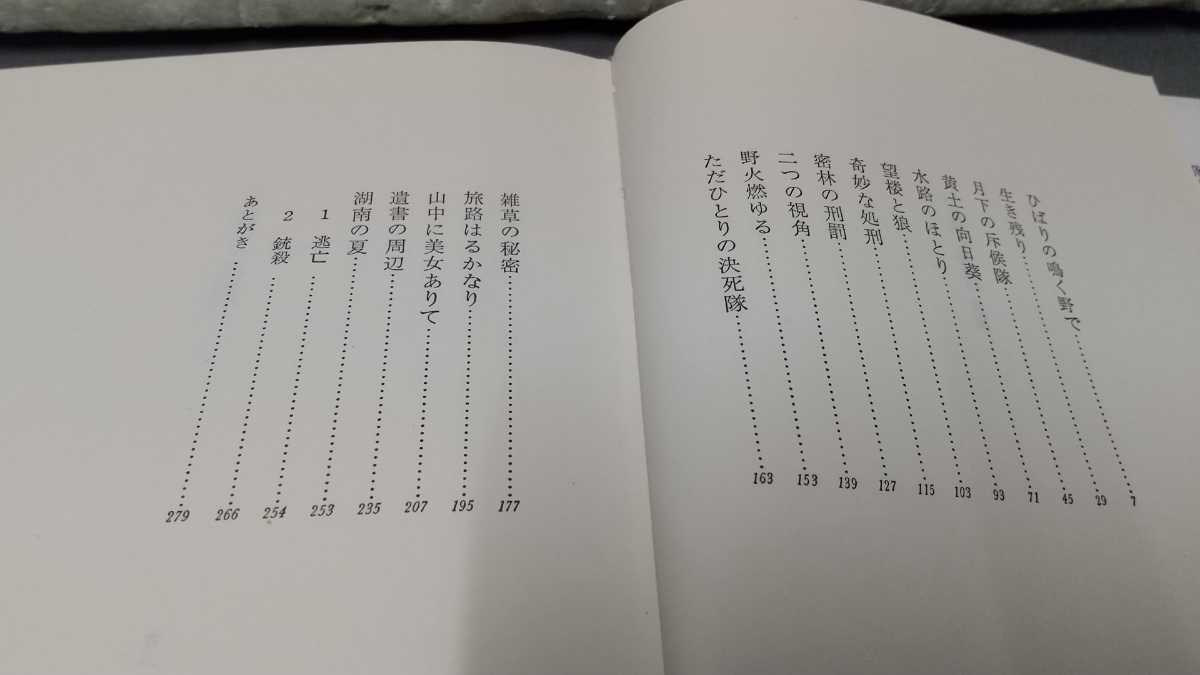 ひばりの鳴く野で……7
生き残り……29
月下の斥候隊……45
黄土の向日葵……71
水路のほとり……93
望楼と狼……103
奇妙な処刑……115
密林の刑罰……127
二つの視角……139
野火燃ゆる……153
ただひとりの決死隊……163
雑草の秘密……177
旅路はるかなり……195
山中に美女ありて……207
遺書の周辺……235
湖南の夏……253
1 逃亡……254
2 銃殺……266
あとがき……279